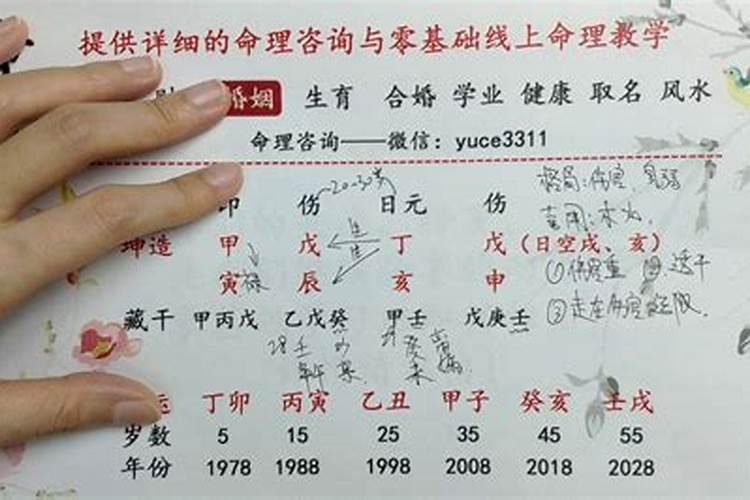 提供详细的命理咨询与零基础线上命理教学
婚姻 生育 合婚 学业 健康 取名 风水
命理咨询——微信：yuce3311
~20-30岁
格局：伤官，身弱
印 伤 日元 伤
喜用：木火，
坤造 甲 戊 生 丁 戊（日空戌、亥）
生
寅 禄 辰 亥 申
①伤官重 透干
②走在伤官运限，
藏干 甲丙戊 乙戊癸 甲壬 戊庚壬
运 丁卯 丙寅 乙丑 甲子 癸亥 壬戌
岁数 5 15 25 35 45 55
年份 1978 1988 1998 2008 2018 2028